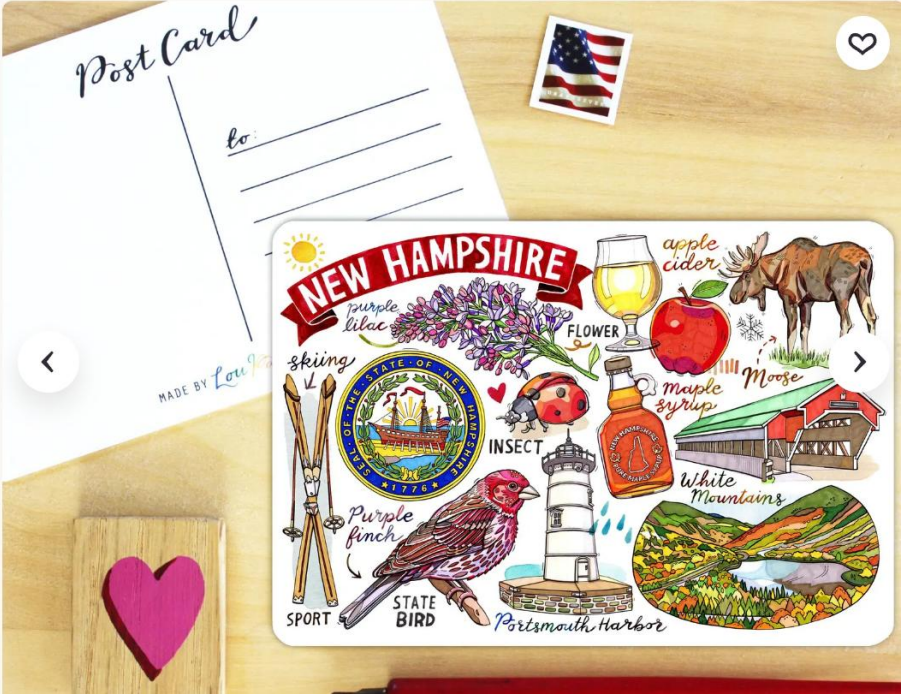 Post Card
to:
MADE BY Lou
NEW HAMPSHIRE
purple
lilac
FLOWER
apple
cider
Moose
skiing
SPORT
SEAL · OF · THE · STATE · OF · NEW HAMPSHIRE
1776
INSECT
maple
syrup
NEW HAMPSHIRE
PURE MAPLE SYRUP
White
Mountains
Purple
finch
STATE
BIRD
Portsmouth Harbor